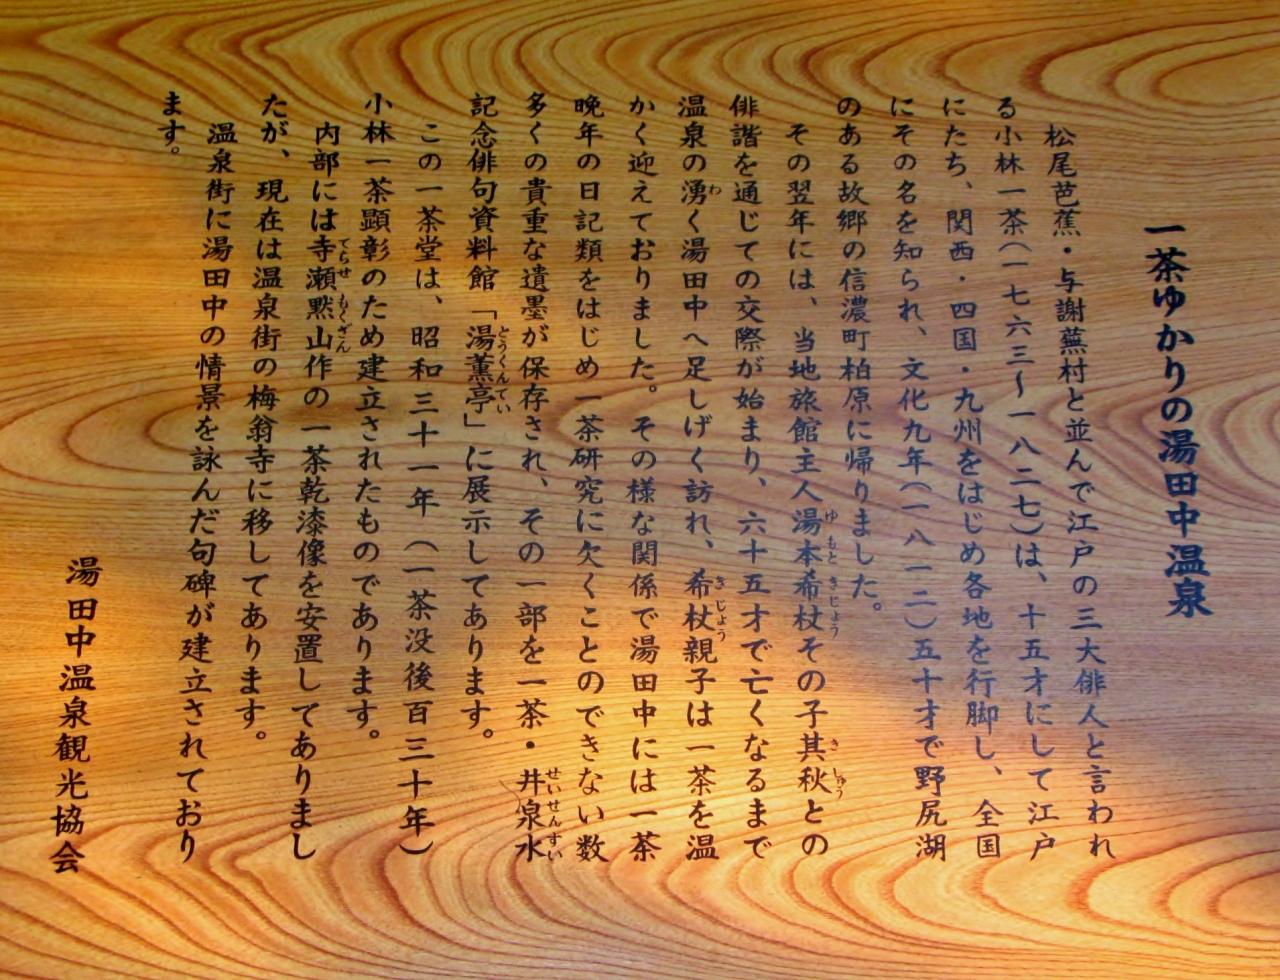 一茶ゆかりの湯田中温泉
松尾芭蕉・与謝蕪村と並んで江戸の三大俳人と言われ
る小林一茶(一七六三〜一八二七)は、十五才にして江戸
にたち、関西・四国・九州をはじめ各地を行脚し、全国
にその名を知られ、文化九年(一八一二)五十才で野尻湖
のある故郷の信濃町柏原に帰りました。
その翌年には、当地旅館主人湯本希杖その子其秋との
俳諧を通じての交際が始まり、六十五才で亡くなるまで
温泉の湧く湯田中へ足しげく訪れ、希杖親子は一茶を温
かく迎えておりました。その様な関係で湯田中には一茶
晩年の日記類をはじめ一茶研究に欠くことのできない数
多くの貴重な遺墨が保存され、その一部を一茶・井泉水
記念俳句資料館「湯薫亭」に展示してあります。
この一茶堂は、昭和三十一年(一茶没後百三十年)
小林一茶顕彰のため建立されたものであります。
内部には寺瀬黙山作の一茶乾漆像を安置してありまし
たが、現在は温泉街の梅翁寺に移してあります。
温泉街に湯田中の情景を詠んだ句碑が建立されており
ます。
湯田中温泉観光協会